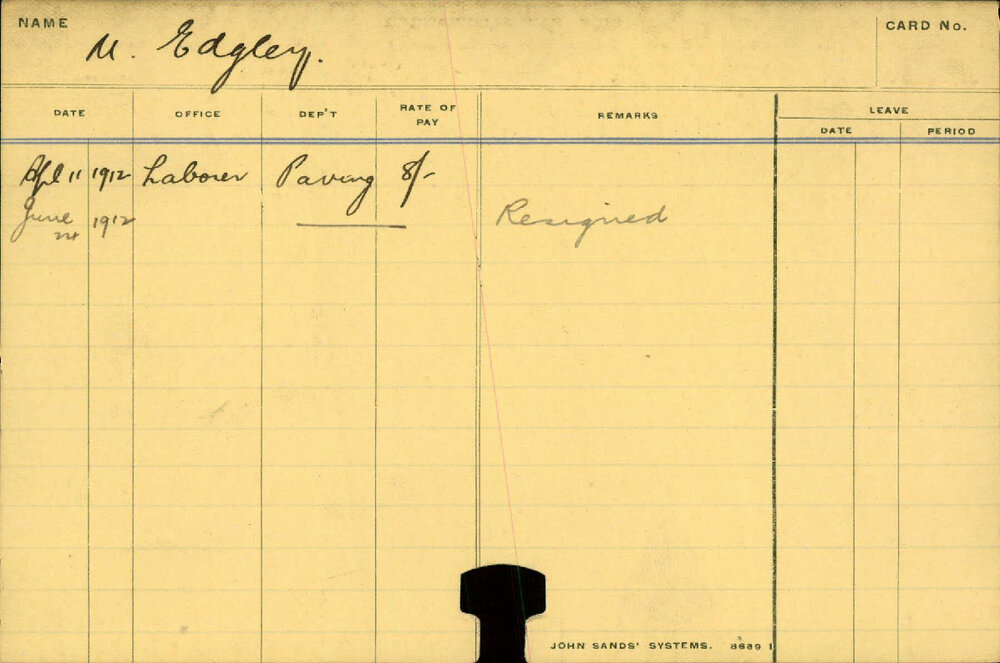 NAME
M. Edgley.
CARD No.
DATE OFFICE DEP'T RATE OF PAY REMARKS LEAVE
DATE PERIOD
Apl 11 1912 Laborer Paving 8/-
June 24 1912 Resigned
JOHN SANDS' SYSTEMS. 8689